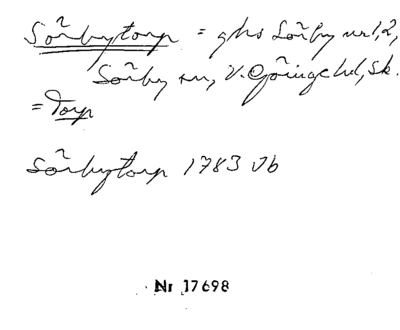 Sörbytorp = ghs Sörby nr 1,2,
Sörby sn, V. Göinge hd, Sk.
= Torp
Sörbytorp 1783 Jb
Nr 17698